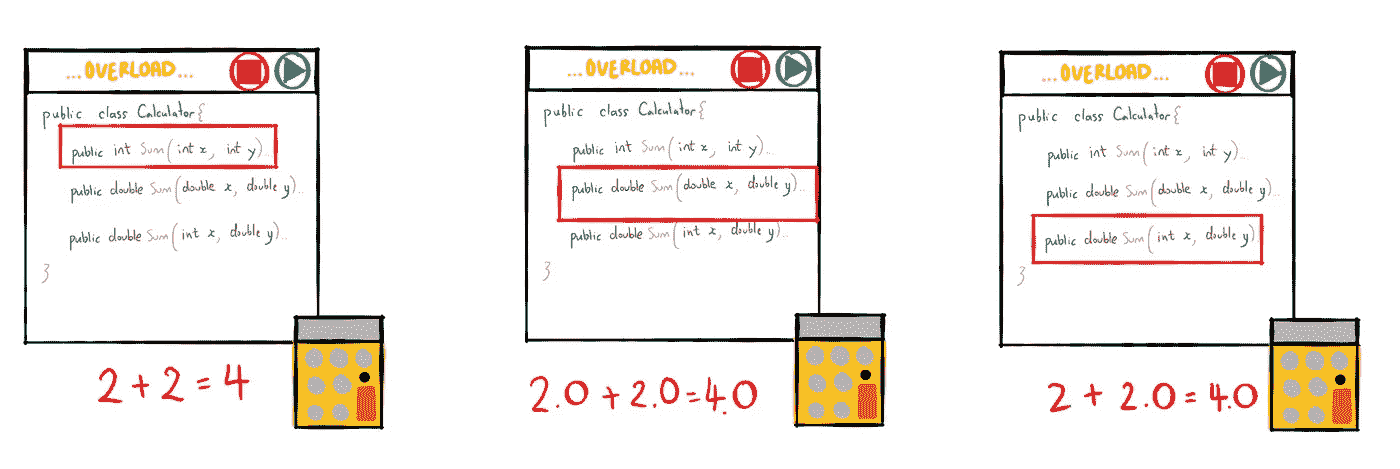 ...OVERLOAD...
public class Calculator{
public int Sum(int x, int y)
public double Sum(double x, double y)..
public double Sum(int x, double y)..
}
2 + 2 = 4
...OVERLOAD...
public class Calculator{
public int Sum(int x, int y)...
public double Sum(double x, double y)..
public double Sum(int x, double y)..
}
2.0 + 2.0 = 4.0
...OVERLOAD...
public class Calculator{
public int Sum(int x, int y)...
public double Sum(double x, double y)..
public double Sum(int x, double y)
}
2 + 2.0 = 4.0